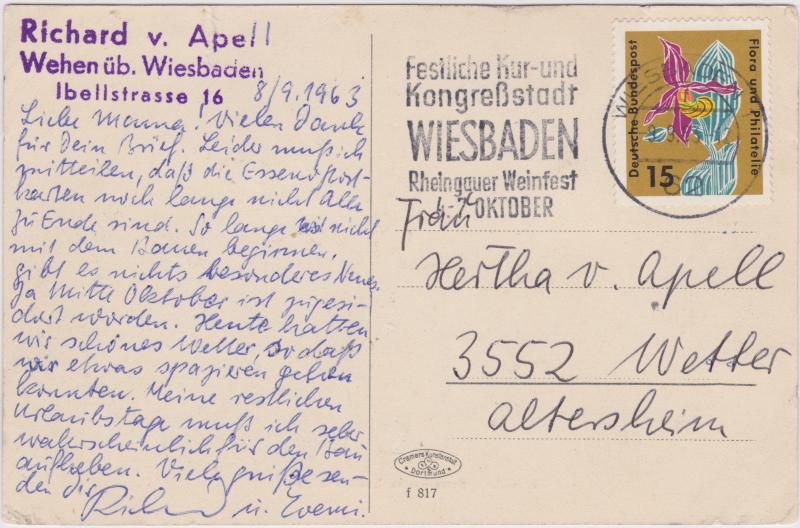 Richard v. Apell
Wehen üb. Wiesbaden
Ibellstrasse 16
8/9.1963
Liebe Mama. Vielen Dank
für Dein Brief. Leider muß ich
mitteilen, daß die Essenspost-
karten noch lange nicht Alle
zu Ende sind. So lange wir nicht
mit dem Bauen beginnen,
gibt es nichts besonderes Neues.
Ja Mitte Oktober ist zugesi-
chert worden. Heute hatten
wir schönes Wetter, so daß
wir etwas spazieren gehen
konnten. Meine restlichen
Urlaubstage muß ich
wahrscheinlich für den Bau
aufheben. Viele Grüße sen-
den dir
Richard u.
Festliche Kur-und
Kongreßstadt
WIESBADEN
Rheingauer Weinfest
4.-7. OKTOBER
WIESBADEN
Deutsche Bundespost
15
Flora und Philatelie
Frau
Hertha v. Apell
3552 Wetter
Altersheim
Cramers Kunstanstalt
Dortmund
f 817